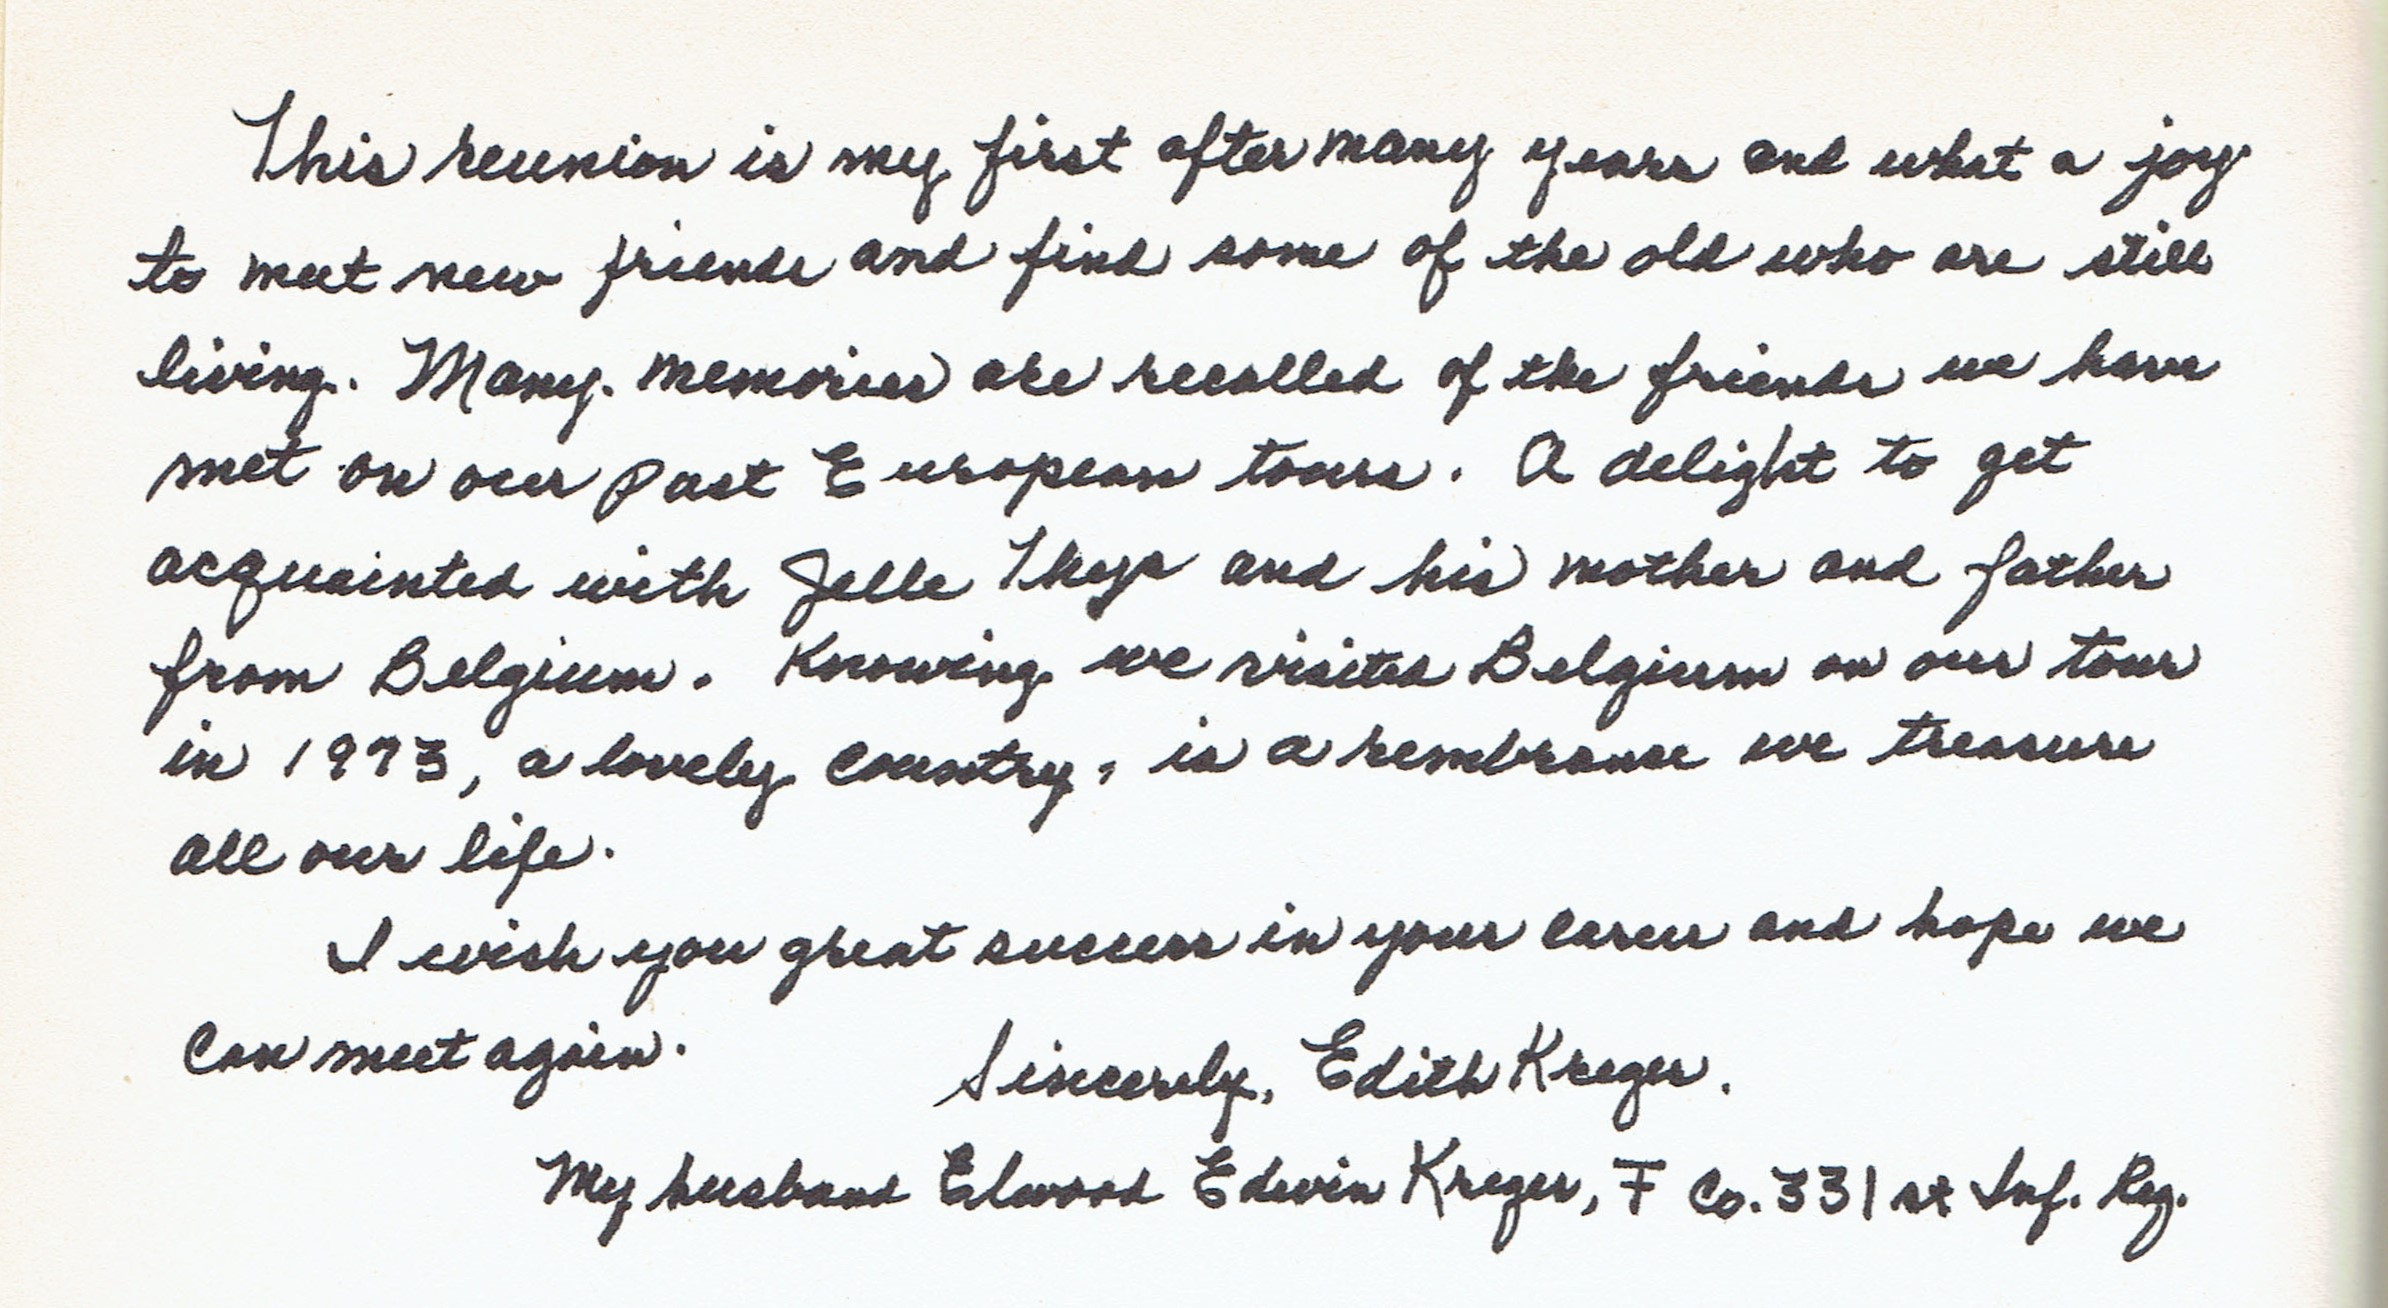 This reunion is my first after many years and what a joy
to meet new friends and find some of the old who are still
living. Many memories are recalled of the friends we have
met on our past European tours. A delight to get
acquainted with Jelle Thys and his mother and father
from Belgium. Knowing we visited Belgium on our tour
in 1973, a lovely country, is a rembranse we treasure
all our life.
I wish you great success in your career and hope we
can meet again.
Sincerely, Edith Kreger.
My husband Elwood Edwin Kreger, F Co. 331 st Inf. Reg.